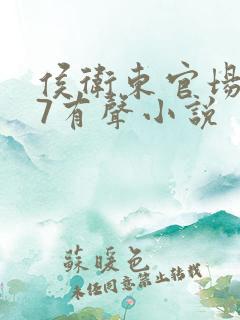 侯衛東官場
7有聲小說
蘇暖色
未经同意禁止转载